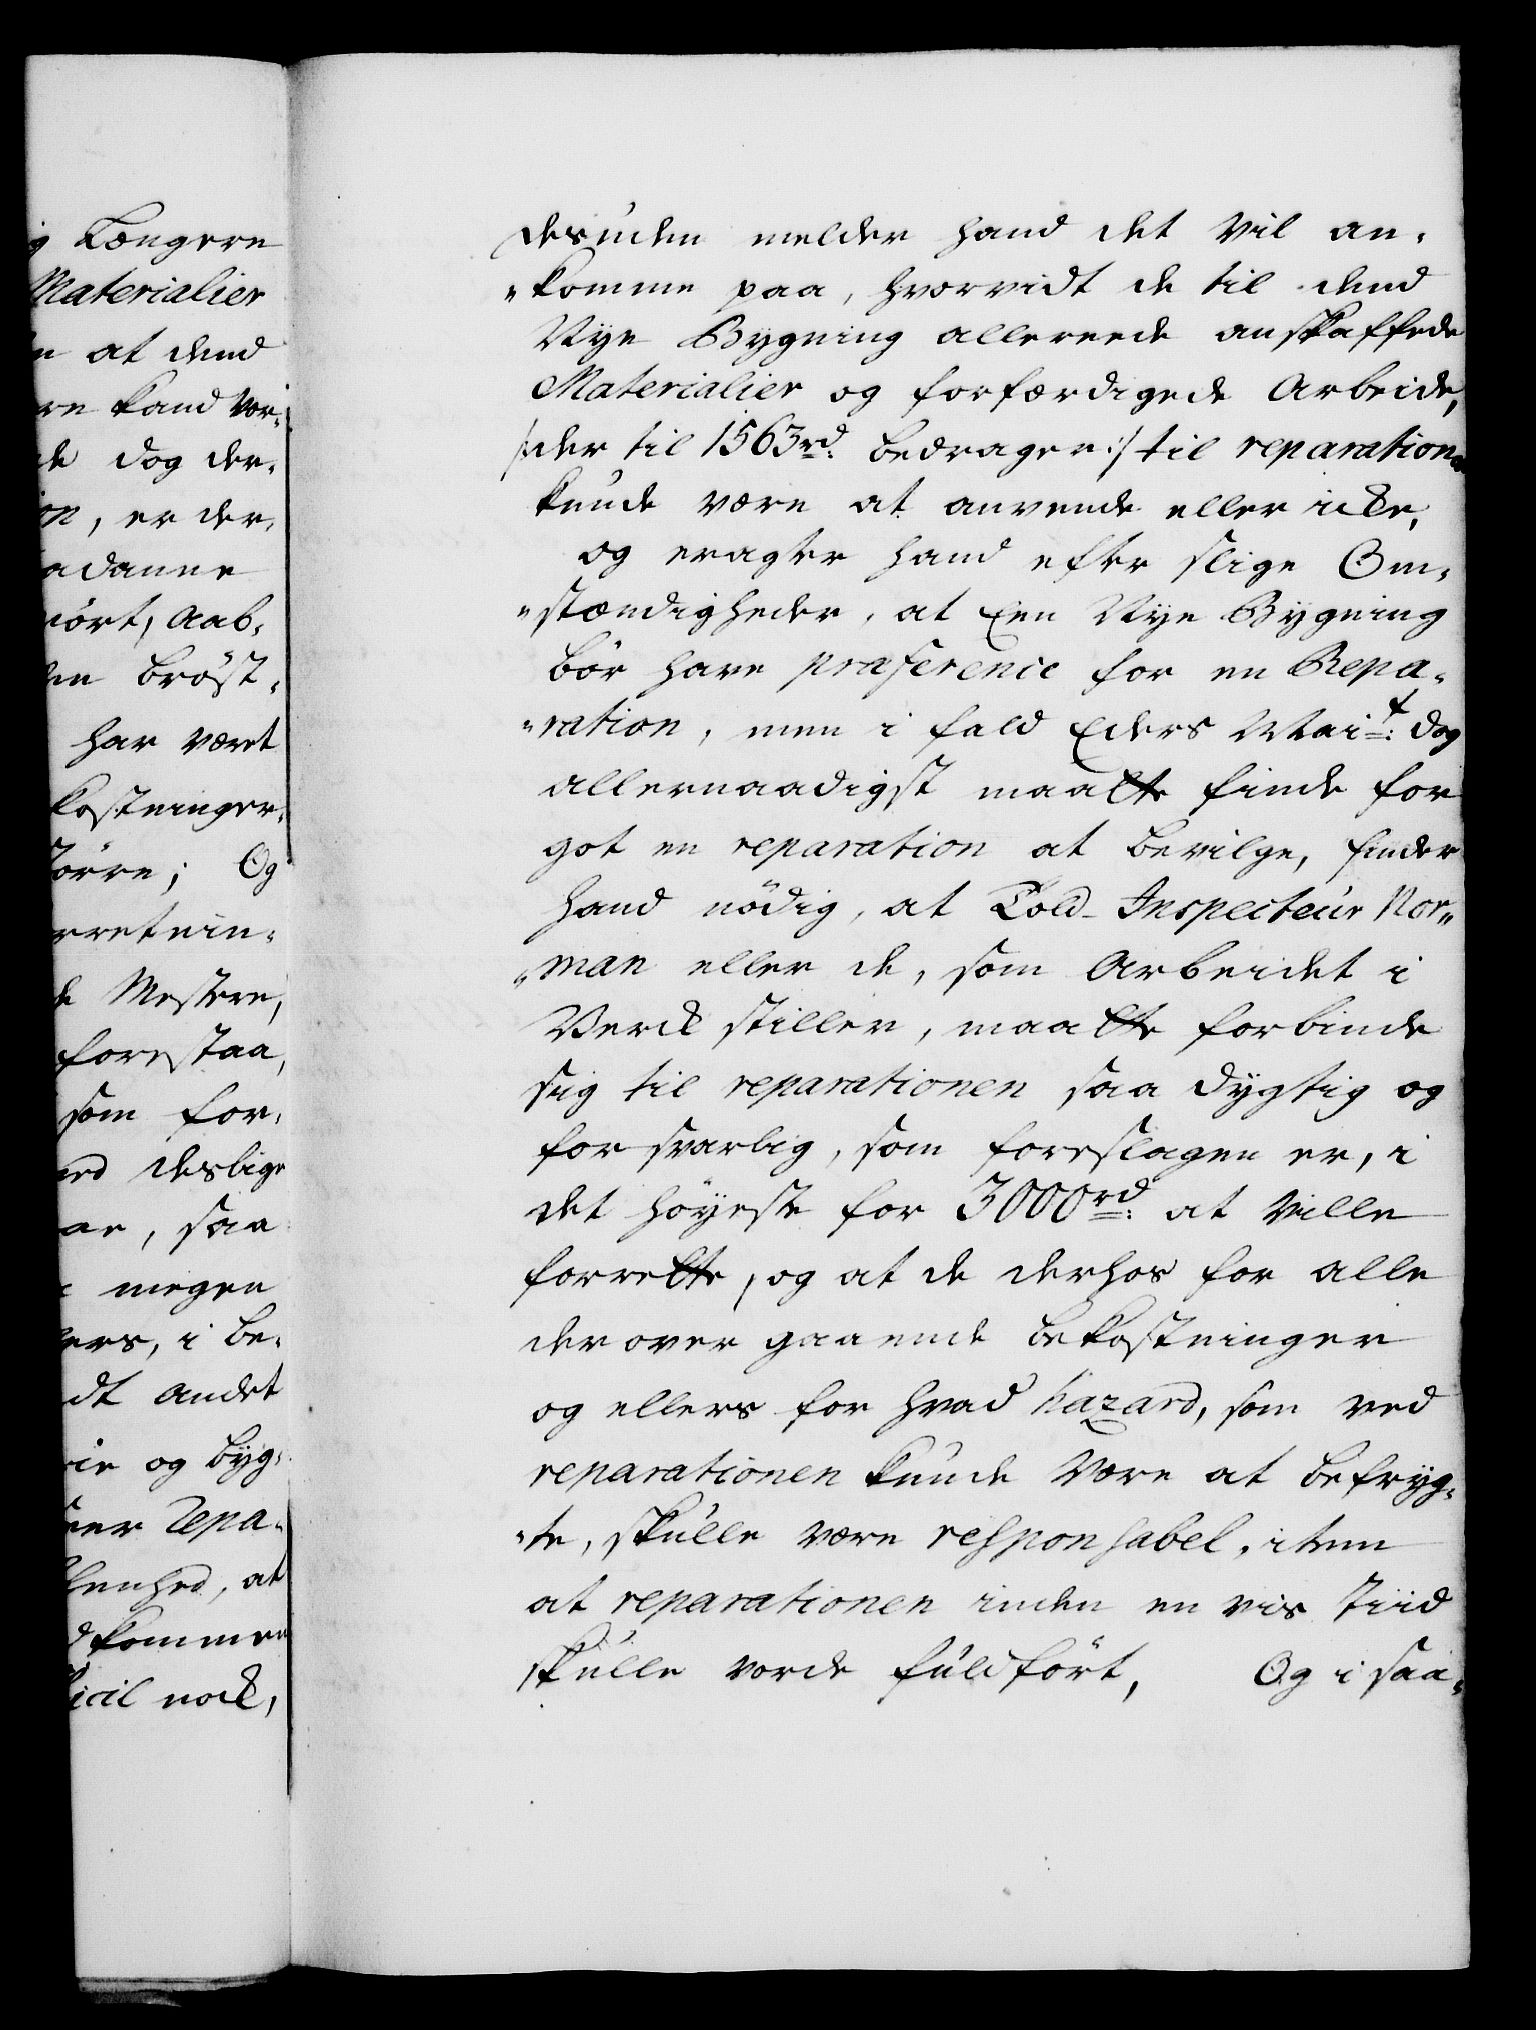 g Længere
Materialier
n at dend
re kand vor-
de dog der-
on, er der,
adanne
iört, Aab-
en bröst-
har været
kostninger,
törre; Og
rretnin-
de Mestere,
forestaa,
som for-
erd deslige
ar, saa
megen
ers, i be-
dt andet
ie og byg-
eer Repa-
enhed, at
dkommen
icil nock,
desuden melder hand det vil an-
"komme paa, hvorvidt de til dend
Nye Bygning allereede anskaffede
Materialier og forfærdigede Arbeide,
/:der til 1563rd: bedrager:/ til reparation
kunde være at anvende eller icke,
og eragter hand efter slige Om-
"stændigheder, at Een Nye Bygning
bör have præference for en Repa-
"ration, men i fald Eders Mait: dog
allernaadigst maatte finde for
got en reparation at bevilge, finder
hand nödig, at Told-Inspecteur Nor"
"man eller de, som Arbeidet i
Verck stiller, maatte forbinde
sig til reparationen saa dygtig og
forsvarlig, som foreslagen er, i
det höyeste for 3000rd: at ville
forrette, og at de derhos for alle
derover gaaende bekostninger
og ellers for hvad hazard, som ved
reparationen kunde være at befryg-
"te, skulle være responsabel, item
at reparationen inden en vis tiid
skulle vorde fuldfört, Og i saa-